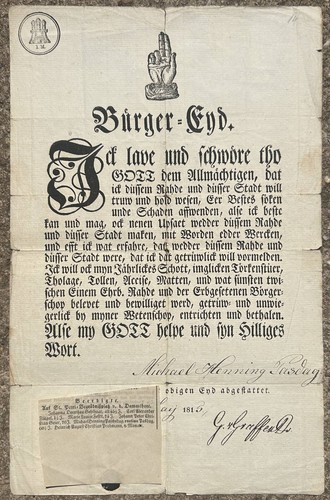 Bürger-Eyd.
Ick lave und schwöre tho
GOTT dem Allmächtigen, dat
ick düssem Rahde und düsser Stadt will
truw und hold wesen, Eer Bestes söken
unde Schaden affwenden, alse ick beste
kan und mag, ock nenen Upsaet wedder düssem Rahde
und düsser Stadt maken, mit Worden edder Wercken,
und efft ick wat erfahre, dat wedder düssem Rahde und
düsser Stadt were, dat ick dat getreuwlick will vormelden.
Ick will ock myn Jährlickes Schott, imglicken Törkenstüer,
Tholage, Tollen, Accise, Matten, und wat sünsten twi-
schen Einem Ehrb. Rahde und der Erbgesetenen Börger-
schop belevet und bewilliget werd, getruw- und unwie-
gerlick by myner Wetenschop, entrichten und bethalen.
Alse my GOTT helpe und syn Hilliges
Wort.
Michael Henning
digen Eyd abgestattet.
1815
Beerdigte.